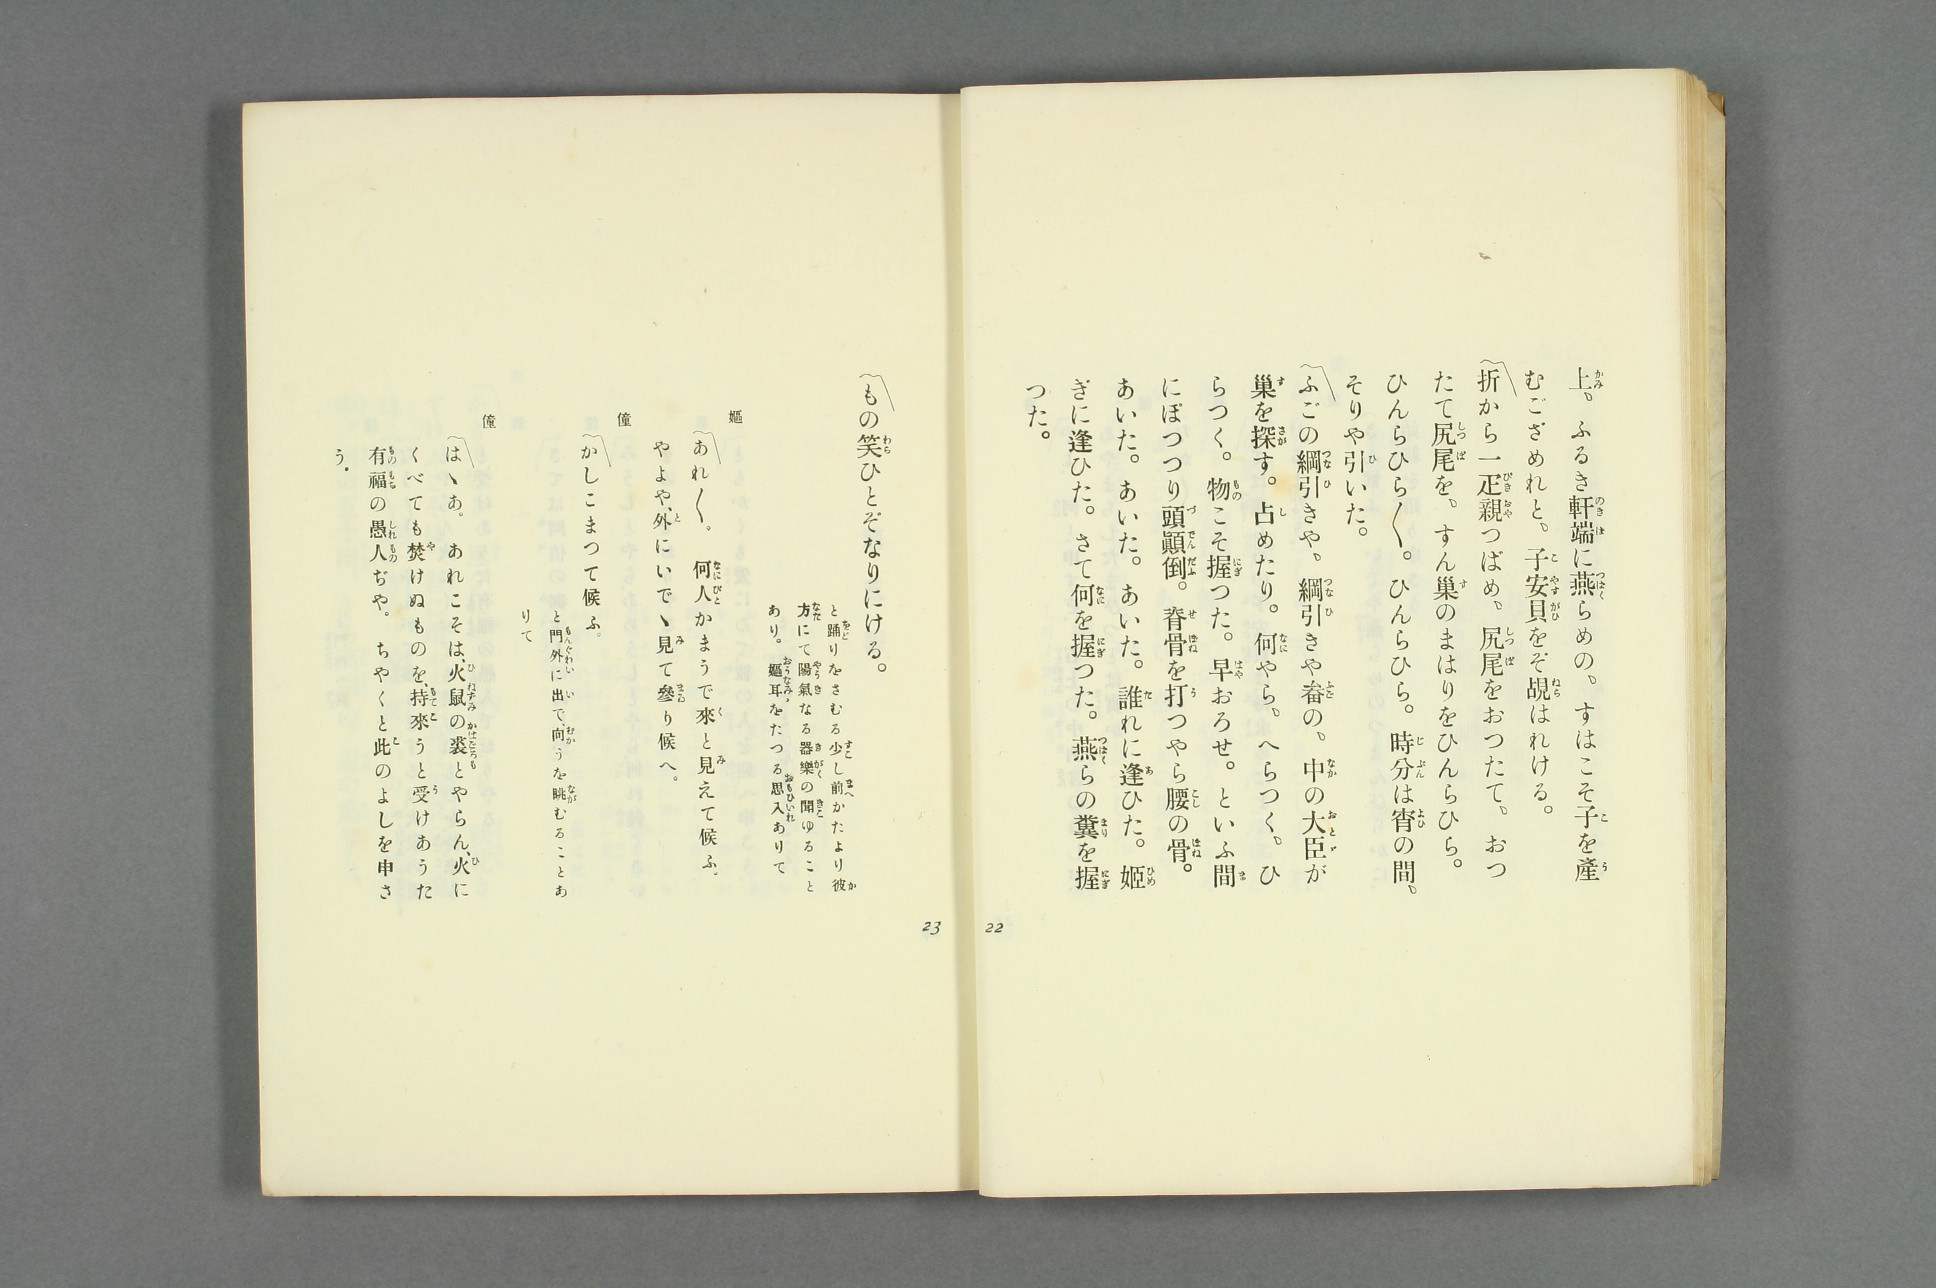 上。ふるき軒端に燕らめの、すはこそ子を產
むござめれと、子安貝をぞ覘はれける。
〽折から一疋親つばめ、尻尾をおつたて、おつ
たて尻尾を、すん巢のまはりをひんらひら。
ひんらひら〱。ひんらひら。時分は宵の間、
そりや引いた。
〽ふごの綱引きや、綱引きや畚の、中の大臣が
巢を探す。占めたり。何やら、へらつく、ひ
らつく。物こそ握つた。早おろせ。といふ間
にぼつつり頭顚倒。脊骨を打つやら腰の骨。
あいた。あいた。あいた。誰れに逢ひた。姬
ぎに逢ひた。さて何を握つた。燕らの糞を握
つた。
22
〽もの笑ひとぞなりにける。
と踊りをさむる少し前かたより彼
方にて陽氣なる器樂の聞ゆること
あり。嫗耳をたつる思入ありて
嫗
〽あれ〱。何人かまうで來と見えて候ふ。
やよや、外にいでヽ見て參り候へ。
僮
〽かしこまつて候ふ。
と門外に出で、向うを眺むることあ
りて
僮
〽はヽあ。あれこそは、火鼠の裘とやらん、火に
くべても焚けぬものを、持來うと受けあうた
有福の愚人ぢや。ちやくと此のよしを申さ
う.
23